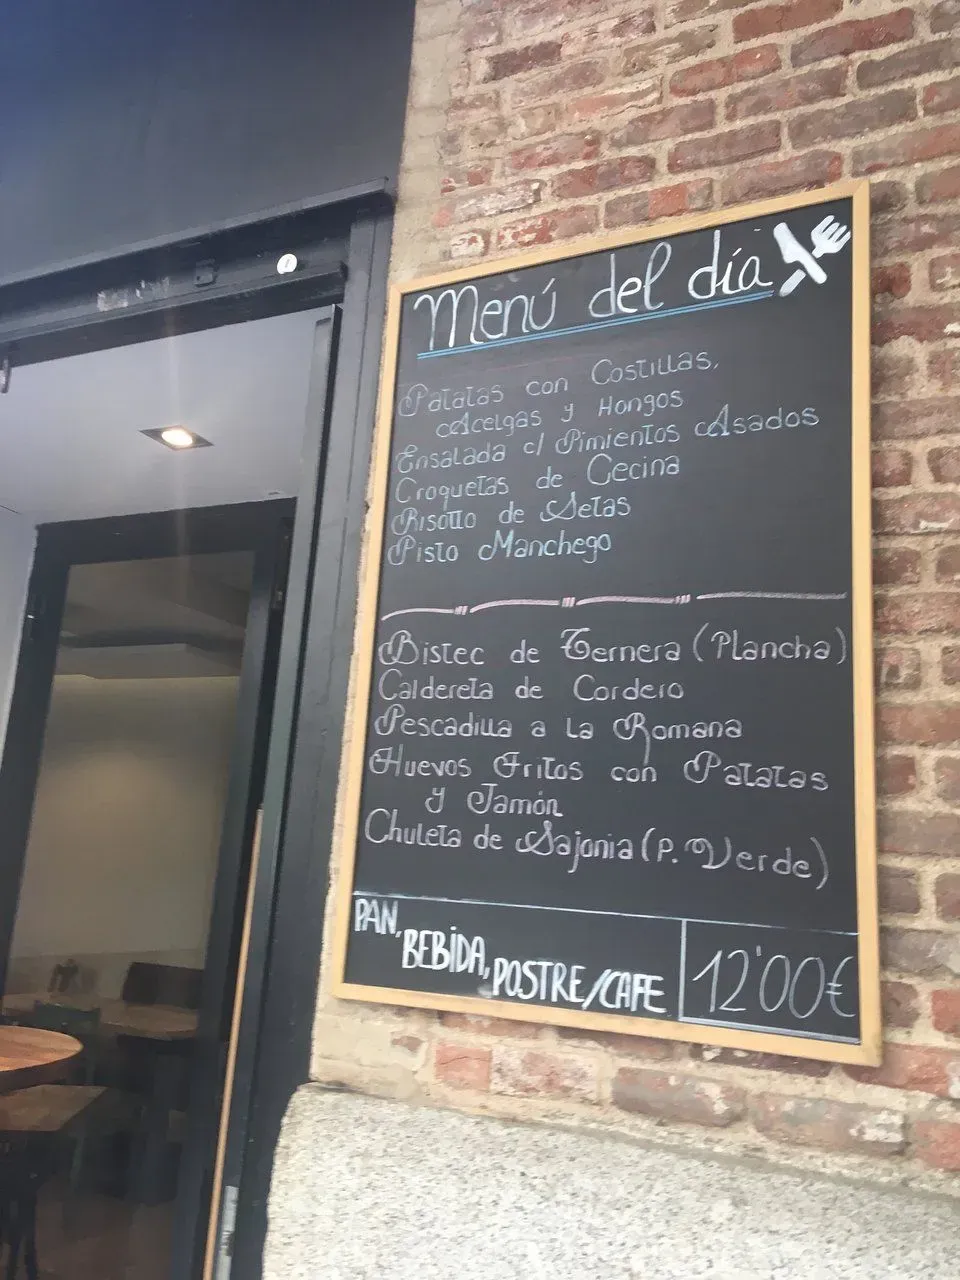 Menú del día
Patatas con Costillas,
Acelgas y Hongos
Ensalada c/ Pimientos Asados
Croquetas de Cecina
Risotto de Setas
Pisto Manchego
Bistec de Ternera (Plancha)
Caldereta de Cordero
Pescadilla a la Romana
Huevos Fritos con Patatas
y Jamón
Chuleta de Sajonia (P. Verde)
PAN, BEBIDA, POSTRE/CAFE
12'00€